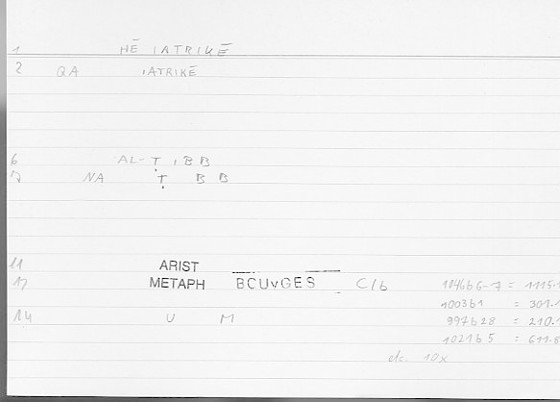 1 HĒ IATRIKĒ
2 QA IATRIKĒ
6 AL-Ṭ IBB
7 NA Ṭ BB
11 ARIST
12 METAPH BCUVGES C/b 1046b6-7 = 1115.
1003b1 = 301.
14 U M 997b28 = 210.
1021b5 = 611.8
etc. 10x